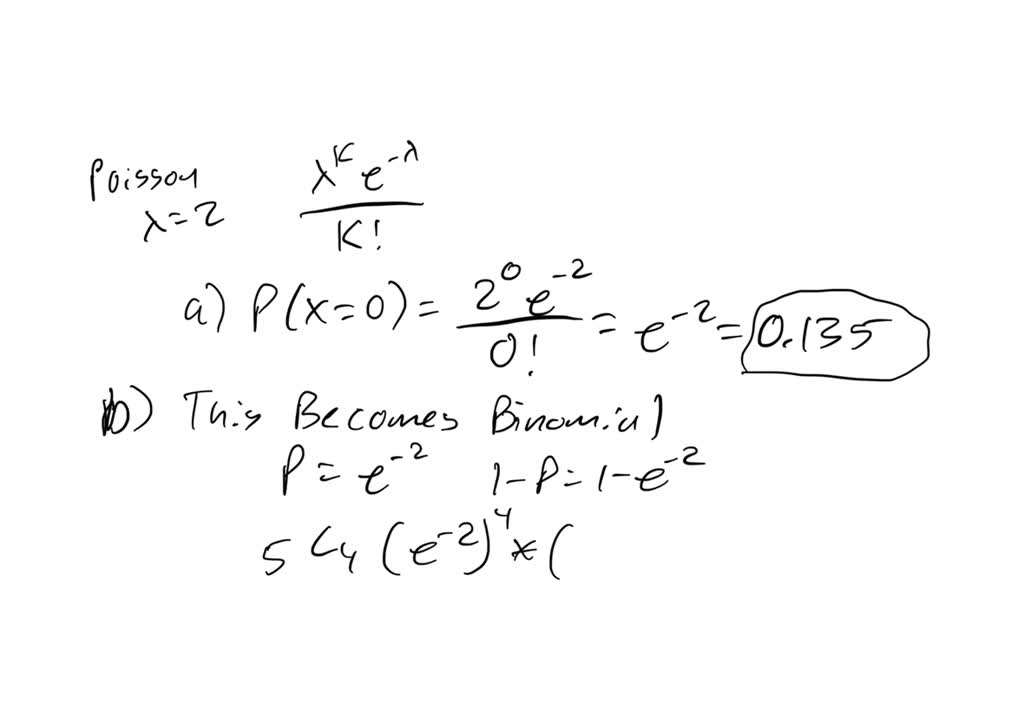 Poisson λ^K e^-λ
λ=2 K!
a) P(x=0) = 2^0 e^-2 / 0! = e^-2 = 0.135
b) This Becomes Binomial
P = e^-2 1-P = 1-e^-2
5 C4 (e^-2)^4 * (